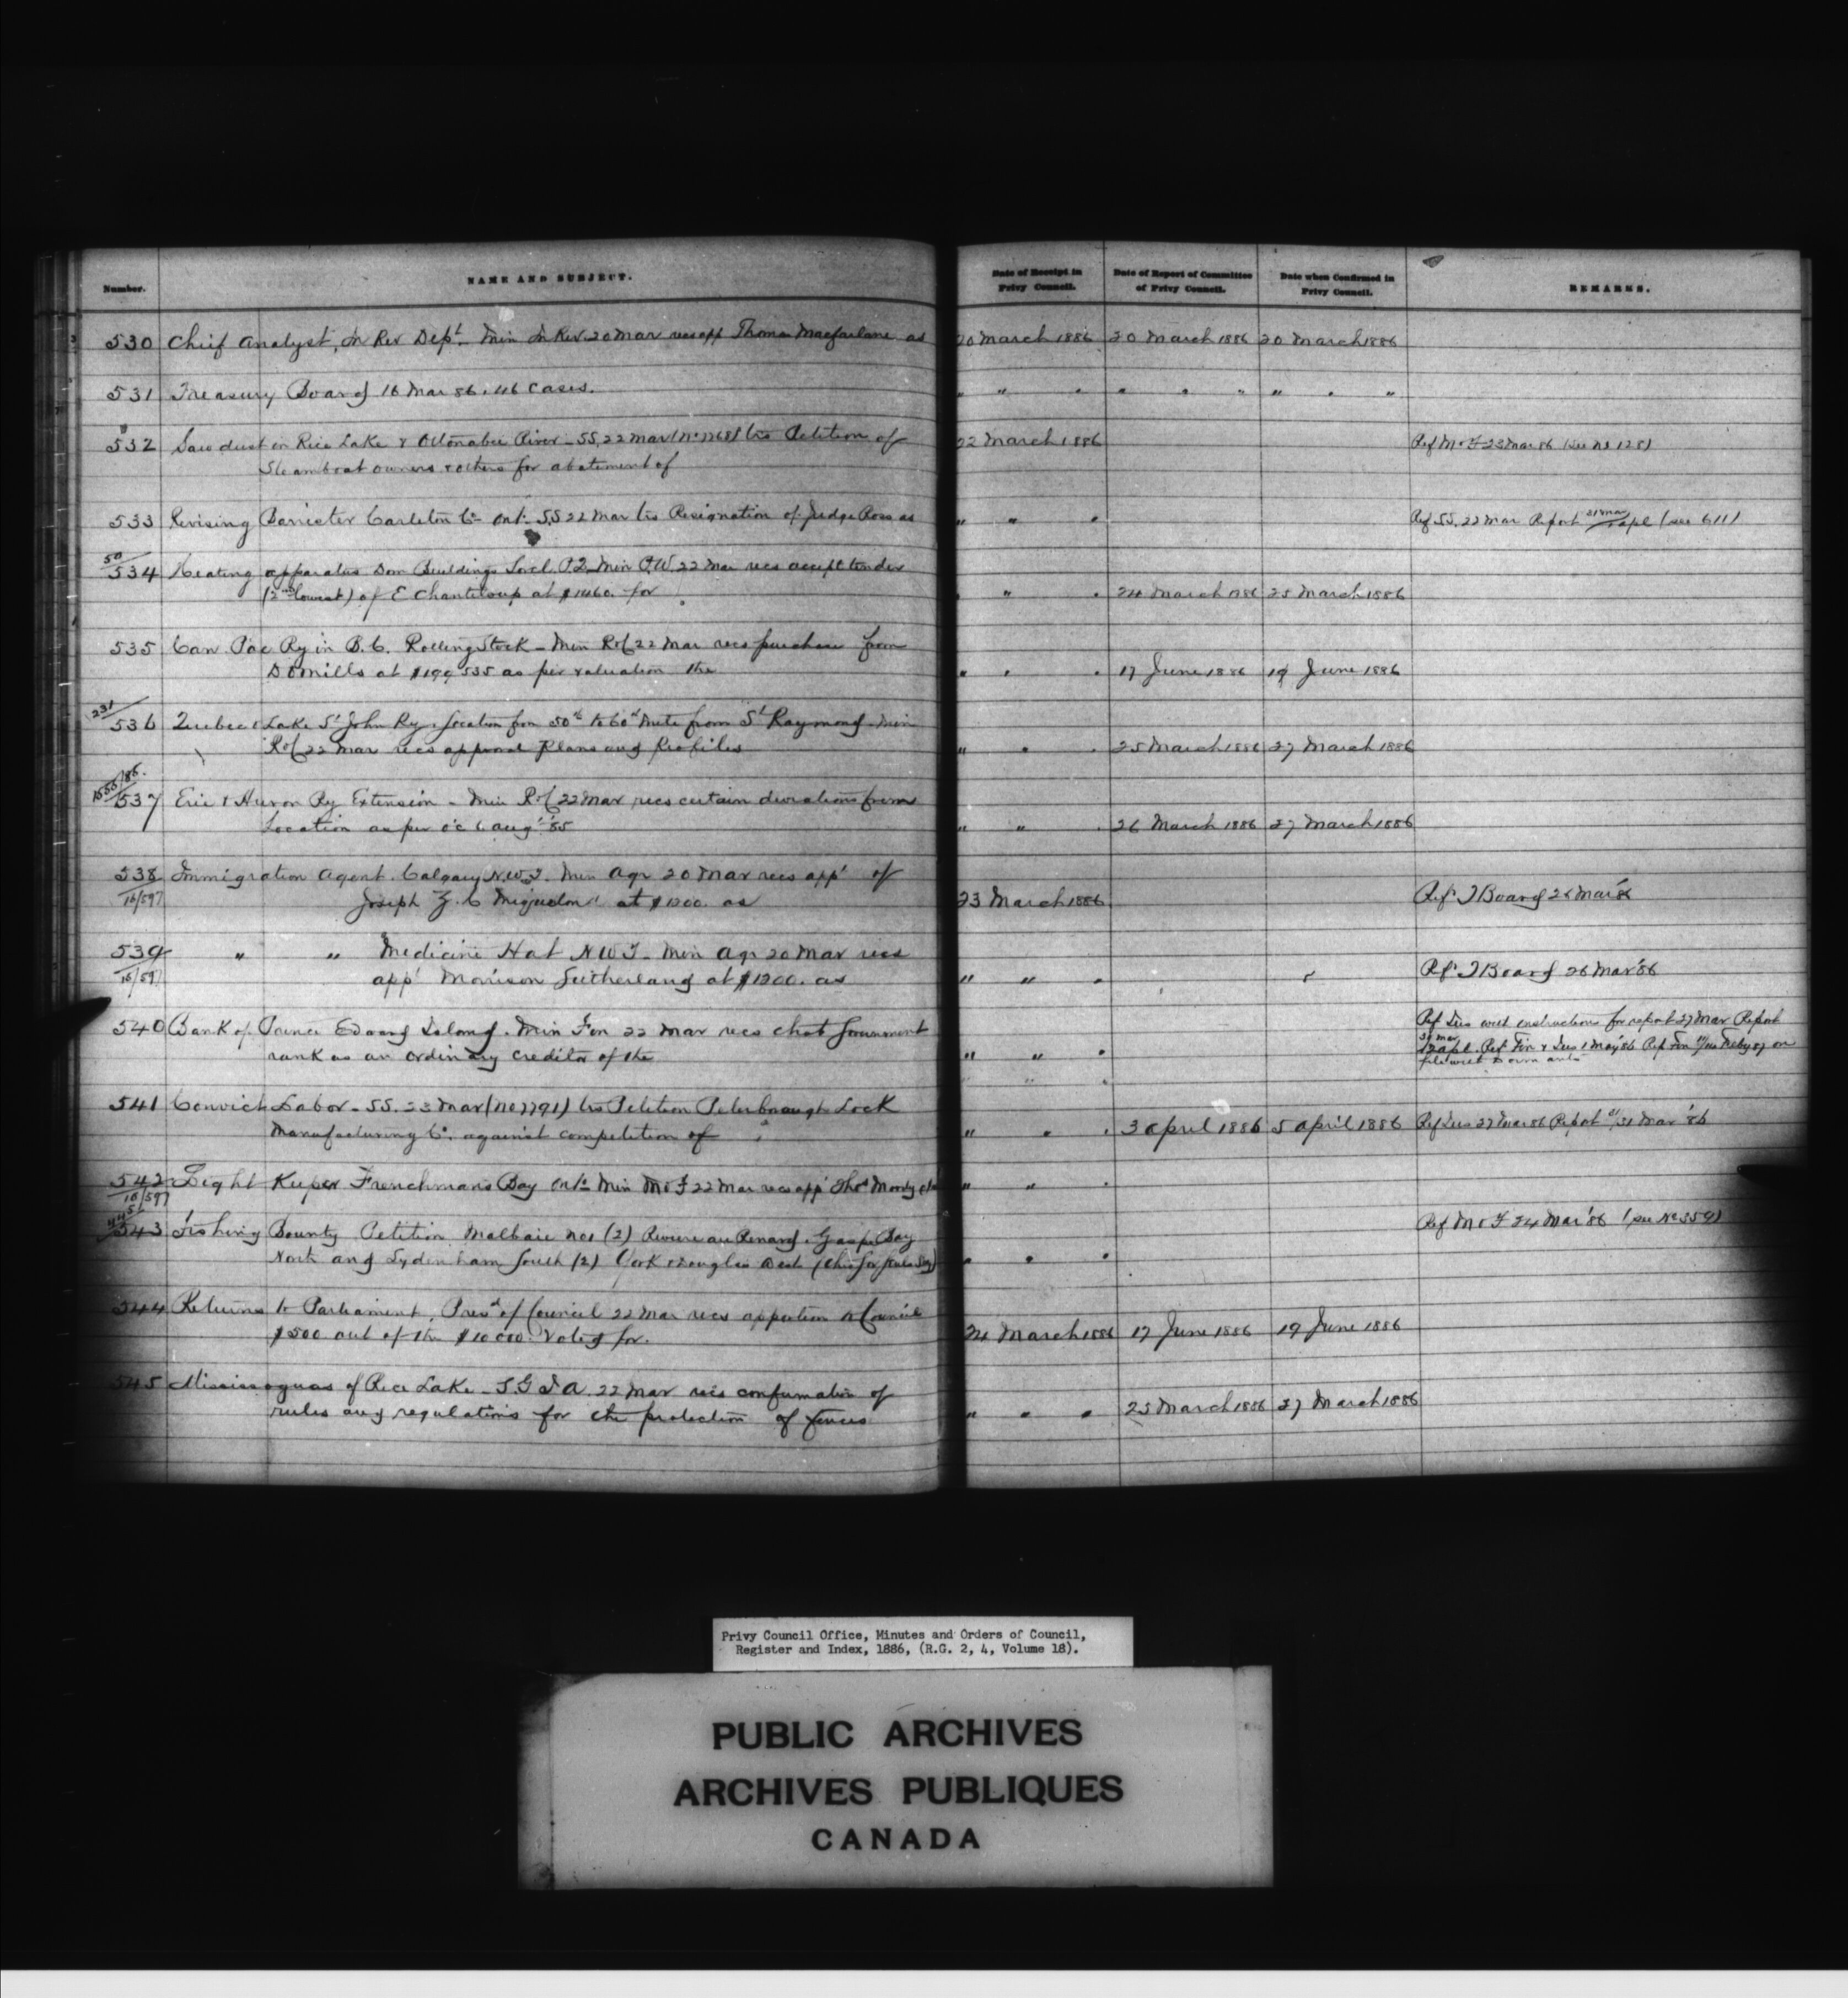 Number.
NAME AND SUBJECT.
Date of Receipt in Privy Council.
Date of Report of Committee of Privy Council.
Date when Confirmed in Privy Council.
REMARKS.
530 Chief Analyst, In Rev Dept - Min In Rev 20 Mar recs app Thomas Macfarlane as 20 March 1886 20 March 1886 20 March 1886
531 Treasury Board 16 Mar 86. 46 cases. " " " " " " " " "
532 Sawdust in Rice Lake & Ottonabee River - SS. 22 Mar (No 7768) trs Petition of 22 March 1886 Ref M of F 23 Mar 86 (see No 128)
Steamboat owners & others for abatement of
533 Revising Barrister Carleton Co Ont - SS 22 Mar trs Resignation of Judge Ross as " " " Ref SS. 22 Mar Report 31 Mar apl (see 611)
50
534 Heating apparatus Dom Buildings Sorel P.Q. Min P.W. 22 Mar recs accept tender
(2nd lowest) of E Chanteloup at $1460. for " " 24 March 1886 25 March 1886
535 Can Pac Ry in B.C. Rolling Stock - Min R of C 22 Mar recs purchase from
D O Mills at $199535 as per valuation the " " " 17 June 1886 19 June 1886
231
536 Quebec & Lake St John Ry. location from 50th to 60th Mile from St Raymond. Min
R of C 22 Mar recs approval Plans and Profiles " " " 25 March 1886 27 March 1886
1555/85.
537 Erie & Huron Ry Extension - Min R of C 22 Mar recs certain deviations from
Location as per o'c 6 Aug '85 " " " 26 March 1886 27 March 1886
538 Immigration Agent. Calgary N.W.T. Min Agr 20 Mar recs app't of
16/597 Joseph Z. C Miquelon at $1200. as 23 March 1886 Ref T Board 26 Mar '86
539 " " Medicine Hat N W T - Min Agr 20 Mar recs
16/597 app't Morrison Sutherland at $1200. as " " " Ref T Board 26 Mar '86
540 Bank of Prince Edward Island. Min Fin 22 Mar recs that Government Ref Jus with instructions for report 27 Mar Report
rank as an ordinary creditor of the " " " 31 Mar 12 apl. Ref Fin & Jus 1 May '86 Ref Fin
" " "
541 Convict Labor - SS. 23 Mar (No 7791) trs Petition Peterborough Lock
Manufacturing Co. against competition of " " " 3 April 1886 5 April 1886 Ref Jus 27 Mar 86 Report 31 Mar '86
542 Light Keeper Frenchmans Bay Ont - Min M of F 22 Mar recs app't Thos Moody as " " "
16/597
543 Fishing Bounty Petition Malbaie No 1 (2) Riviere au Renard. Gaspe Bay Ref M of F 24 Mar '86 (see No 359)
North and Sydenham South (2) York & Douglas West " " "
544 Returns to Parliament. Presdt of Council 22 Mar recs apportion to Council
$500 out of the $10 000 Voted for. 24 March 1886 17 June 1886 19 June 1886
545 Mississaguas of Rice Lake - S.G I A. 22 Mar recs confirmation of
rules and regulations for the protection of fences " " " 25 March 1886 27 March 1886
Privy Council Office, Minutes and Orders of Council,
Register and Index, 1886, (R.G. 2, 4, Volume 18).
PUBLIC ARCHIVES
ARCHIVES PUBLIQUES
CANADA